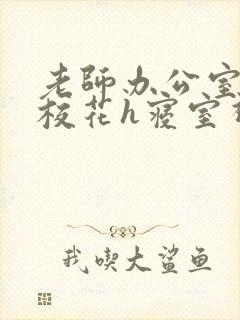 老師办公室
校花h寝室
我喫大鲨鱼